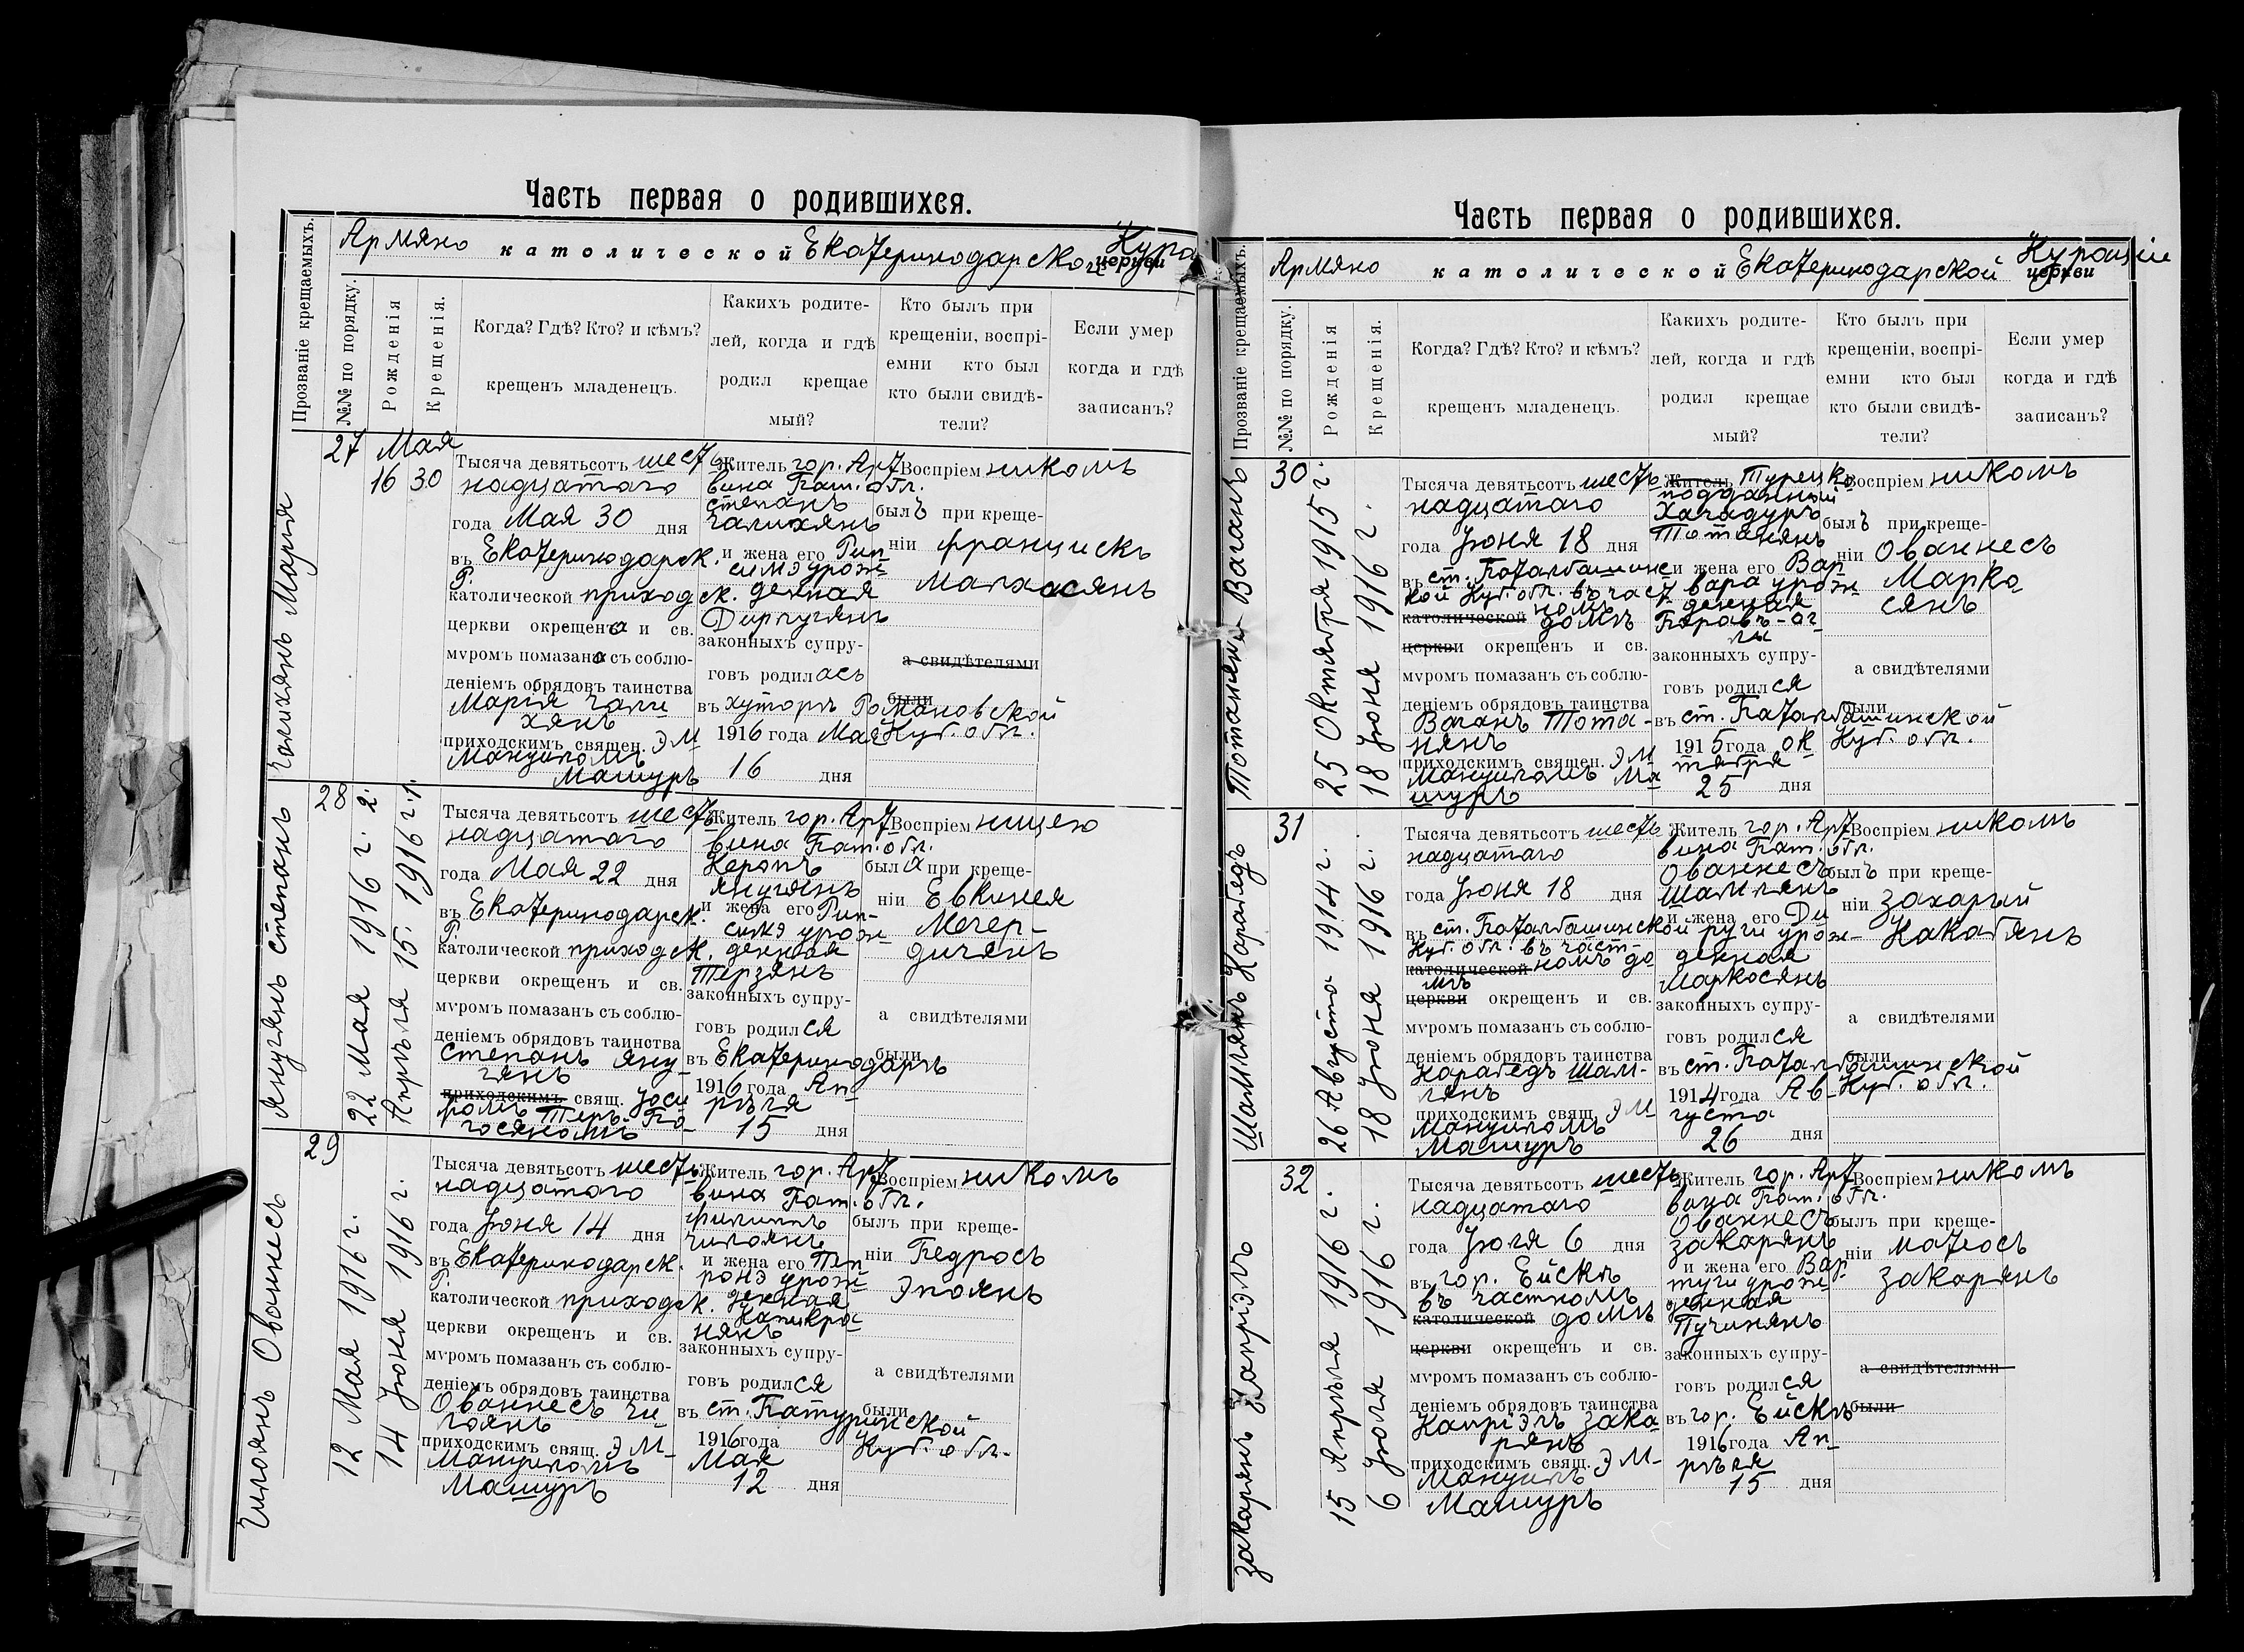 Часть первая о родившихся.
Армяно католической Екатеринодарской Кура
церкви
Прозваніе крещаемыхъ.
№№ по порядку.
Рожденія
Крещенія.
Когда? Гдѣ? Кто? и кѣмъ?
крещенъ младенецъ.
Какихъ родите-
лей, когда и гдѣ
родил крещае
мый?
Кто былъ при
крещеніи, воспрі-
емни кто был
кто были свидѣ-
тели?
Если умер
когда и гдѣ
записанъ?
Чалихянъ Марія
27 Мая
16 30
Тысяча девятьсотъ шесть
надцатаго
года Мая 30 дня
въ Екатеринодарск.
Р.
католической приходск.
церкви окрещена и св.
мѵромъ помазана съ соблю-
деніемъ обрядовъ таинства
Марія Чали
хянъ
приходскимъ священ. Эм
мануиломъ
Машуръ
Житель гор. Арт
вина Бат. обл.
Степанъ
Чалихянъ
и жена его Рип
симэ урож
денная
законныхъ супру-
говъ родилась
въ хуторѣ Романовской
1916 года Мая Куб. обл.
16 дня
Воспріем никомъ
былъ при креще-
ніи Францискъ
Малхасянъ
а свидѣтелями
были
Янугянъ Степанъ
28
22 Мая 1916 г. 2.
Апрѣля 15. 1916 г. 1.
Тысяча девятьсотъ шесть
надцатаго
года Мая 22 дня
въ Екатеринодарск.
Р.
католической приходск.
церкви окрещенъ и св.
мѵромъ помазан съ соблю-
деніемъ обрядовъ таинства
Степанъ Яну-
гянъ
приходскимъ свящ. Іоси
фомъ Теръ-По-
госяномъ
Житель гор. Арт
вина Бат. обл.
Керопъ
Янугянъ
и жена его Рип-
симэ урож-
денная
Терзянъ
законныхъ супру-
говъ родился
въ Екатеринодаръ
1916 года Ап-
рѣля
15 дня
Воспріем ницею
была при креще-
ніи Евкинея
Мечер-
дичянъ
а свидѣтелями
были
Чилоянъ Ованнесъ
29
12 Мая 1916 г.
14 Іюня 1916 г.
Тысяча девятьсотъ шесть
надцатаго
года Іюня 14 дня
въ Екатеринодарск.
Р.
католической приходск.
церкви окрещенъ и св.
мѵромъ помазан съ соблю-
деніемъ обрядовъ таинства
Ованнесъ Чи
лоянъ
приходскимъ свящ. Эм-
мануиломъ
Машуръ
Житель гор. Арт
вина Бат. обл.
Филиппъ
Чилоянъ
и жена его Пеп-
ронэ урож-
денная
законныхъ супру-
говъ родился
въ ст. Батуринской
1916 года Куб. обл.
Мая
12 дня
Воспріем никомъ
былъ при креще-
ніи Бедросъ
Эпоянъ
а свидѣтелями
были
Часть первая о родившихся.
Армяно католической Екатеринодарской Кураціи
церкви
Прозваніе крещаемыхъ.
№№ по порядку.
Рожденія
Крещенія.
Когда? Гдѣ? Кто? и кѣмъ?
крещенъ младенецъ.
Какихъ родите-
лей, когда и гдѣ
родил крещае
мый?
Кто былъ при
крещеніи, воспрі-
емни кто был
кто были свидѣ-
тели?
Если умер
когда и гдѣ
записанъ?
Тотанянъ Ваганъ
30
25 Октября 1915 г.
18 Іюня 1916 г.
Тысяча девятьсотъ шесть
надцатаго
года Іюня 18 дня
въ ст. Баталпашинс
кой Куб. обл. въ част
номъ
католической домѣ
церкви окрещенъ и св.
мѵромъ помазан съ соблю-
деніемъ обрядовъ таинства
Ваганъ Тота-
нянъ
приходскимъ священ. Эм
мануиломъ Ма
шуръ
Житель Турецко
подданный
Хачадуръ
Тотанянъ
и жена его Вар
вара урож
денная
законныхъ супру-
говъ родился
въ ст. Баталпашинской
1915 года Ок Куб. обл.
тября
25 дня
Воспріем никомъ
былъ при креще-
ніи Ованнесъ
Марко
сянъ
а свидѣтелями
были
Шамлянъ Карабедъ
31
26 Августа 1914 г.
18 Іюня 1916 г.
Тысяча девятьсотъ шесть
надцатаго
года Іюня 18 дня
въ ст. Баталпашинской
Куб. обл. въ част-
католической номъ до
мѣ
церкви окрещенъ и св.
мѵромъ помазан съ соблю-
деніемъ обрядовъ таинства
Карабедъ Шам-
лянъ
приходскимъ свящ. Эм-
мануиломъ
Машуръ
Житель гор. Арт
вина Бат. обл.
Ованнесъ
Шамлянъ
и жена его Ди
руги урож-
денная
Маркосянъ
законныхъ супру-
говъ родился
въ ст. Баталпашинской
1914 года Ав- Куб. обл.
густа
26 дня
Воспріем никомъ
былъ при креще-
ніи Захарій
Какабянъ
а свидѣтелями
были
Закарянъ Капріэлъ
32
15 Апрѣля 1916 г.
6 Іюля 1916 г.
Тысяча девятьсотъ шесть
надцатаго
года Іюля 6 дня
въ гор. Ейскѣ
въ частномъ
католической домѣ
церкви окрещенъ и св.
мѵромъ помазан съ соблю-
деніемъ обрядовъ таинства
Капріэлъ Зака
рянъ
приходскимъ свящ. Эм-
мануилъ
Машуръ
Житель гор. Арт
вина Бат. обл.
Ованнесъ
Закарянъ
и жена его Вар
туги урож
денная
Пучинянъ
законныхъ супру-
говъ родился
въ гор. Ейскѣ
1916 года Ап-
рѣля
15 дня
Воспріем никомъ
былъ при креще-
ніи Матеосъ
Закарянъ
а свидѣтелями
были